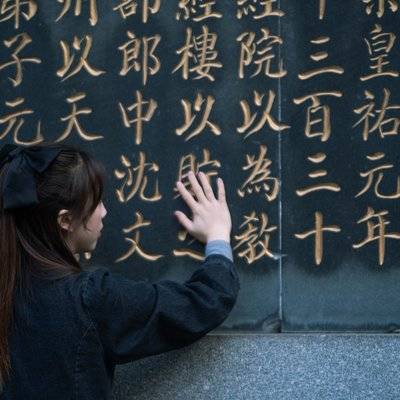 皇祐元年
三百三十
經院以為教
經樓以貯
部郎中沈文
州以天
弟子元